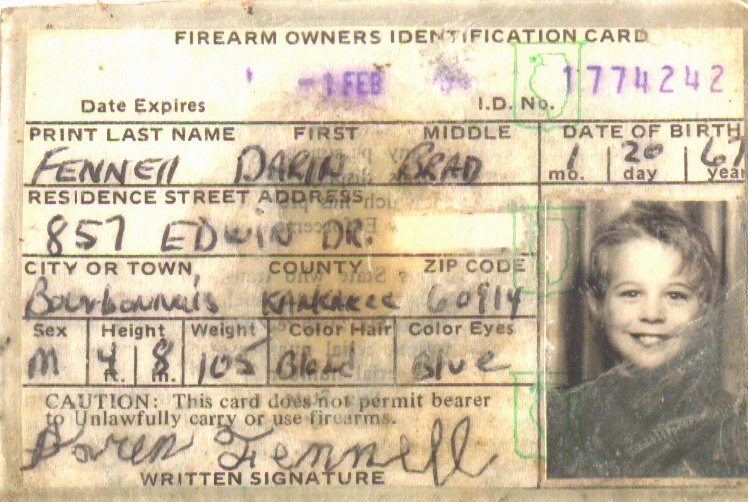 FIREARM OWNERS IDENTIFICATION CARD
1 FEB 1774242
Date Expires I.D. No.
PRINT LAST NAME FIRST MIDDLE DATE OF BIRTH
FENNEll DARIN BRAD 1 20 67
mo. day year
RESIDENCE STREET ADDRESS
857 EDWIN DR.
CITY OR TOWN COUNTY ZIP CODE
Bourbonnais KANKAKEE 60914
Sex Height Weight Color Hair Color Eyes
M 4 8 105 Blond Blue
ft. in.
CAUTION: This card does not permit bearer
to Unlawfully carry or use firearms.
Daren Fennell
WRITTEN SIGNATURE